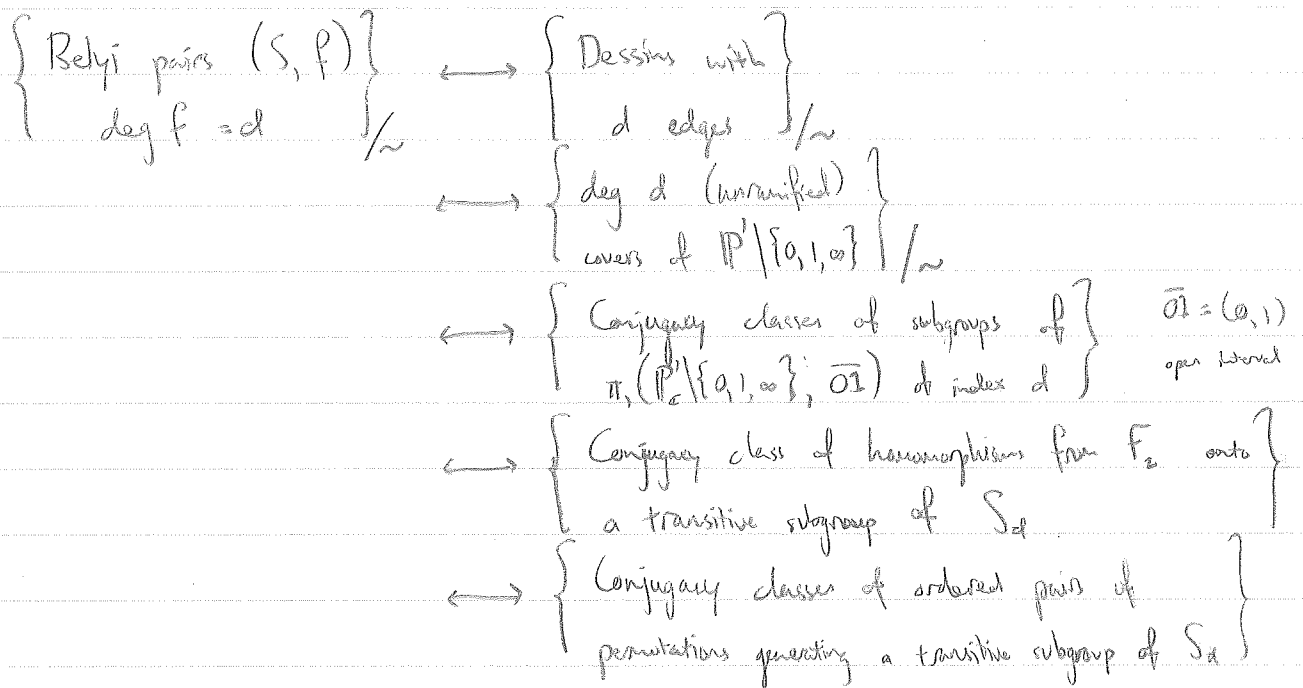 { Belyi pairs (S, f) deg f = d }/~ ⟷ { Dessins with d edges }/~
⟷ { deg d (unramified) covers of ℙ¹\{0,1,∞} }/~
⟷ { Conjugacy classes of subgroups of π₁(ℙ¹_ℂ\{0,1,∞}; 0̅1̅) of index d } 0̅1̅ = (0,1) open interval
⟷ { Conjugacy class of homomorphisms from F₂ onto a transitive subgroup of S_d }
⟷ { Conjugacy classes of ordered pairs of permutations generating a transitive subgroup of S_d }